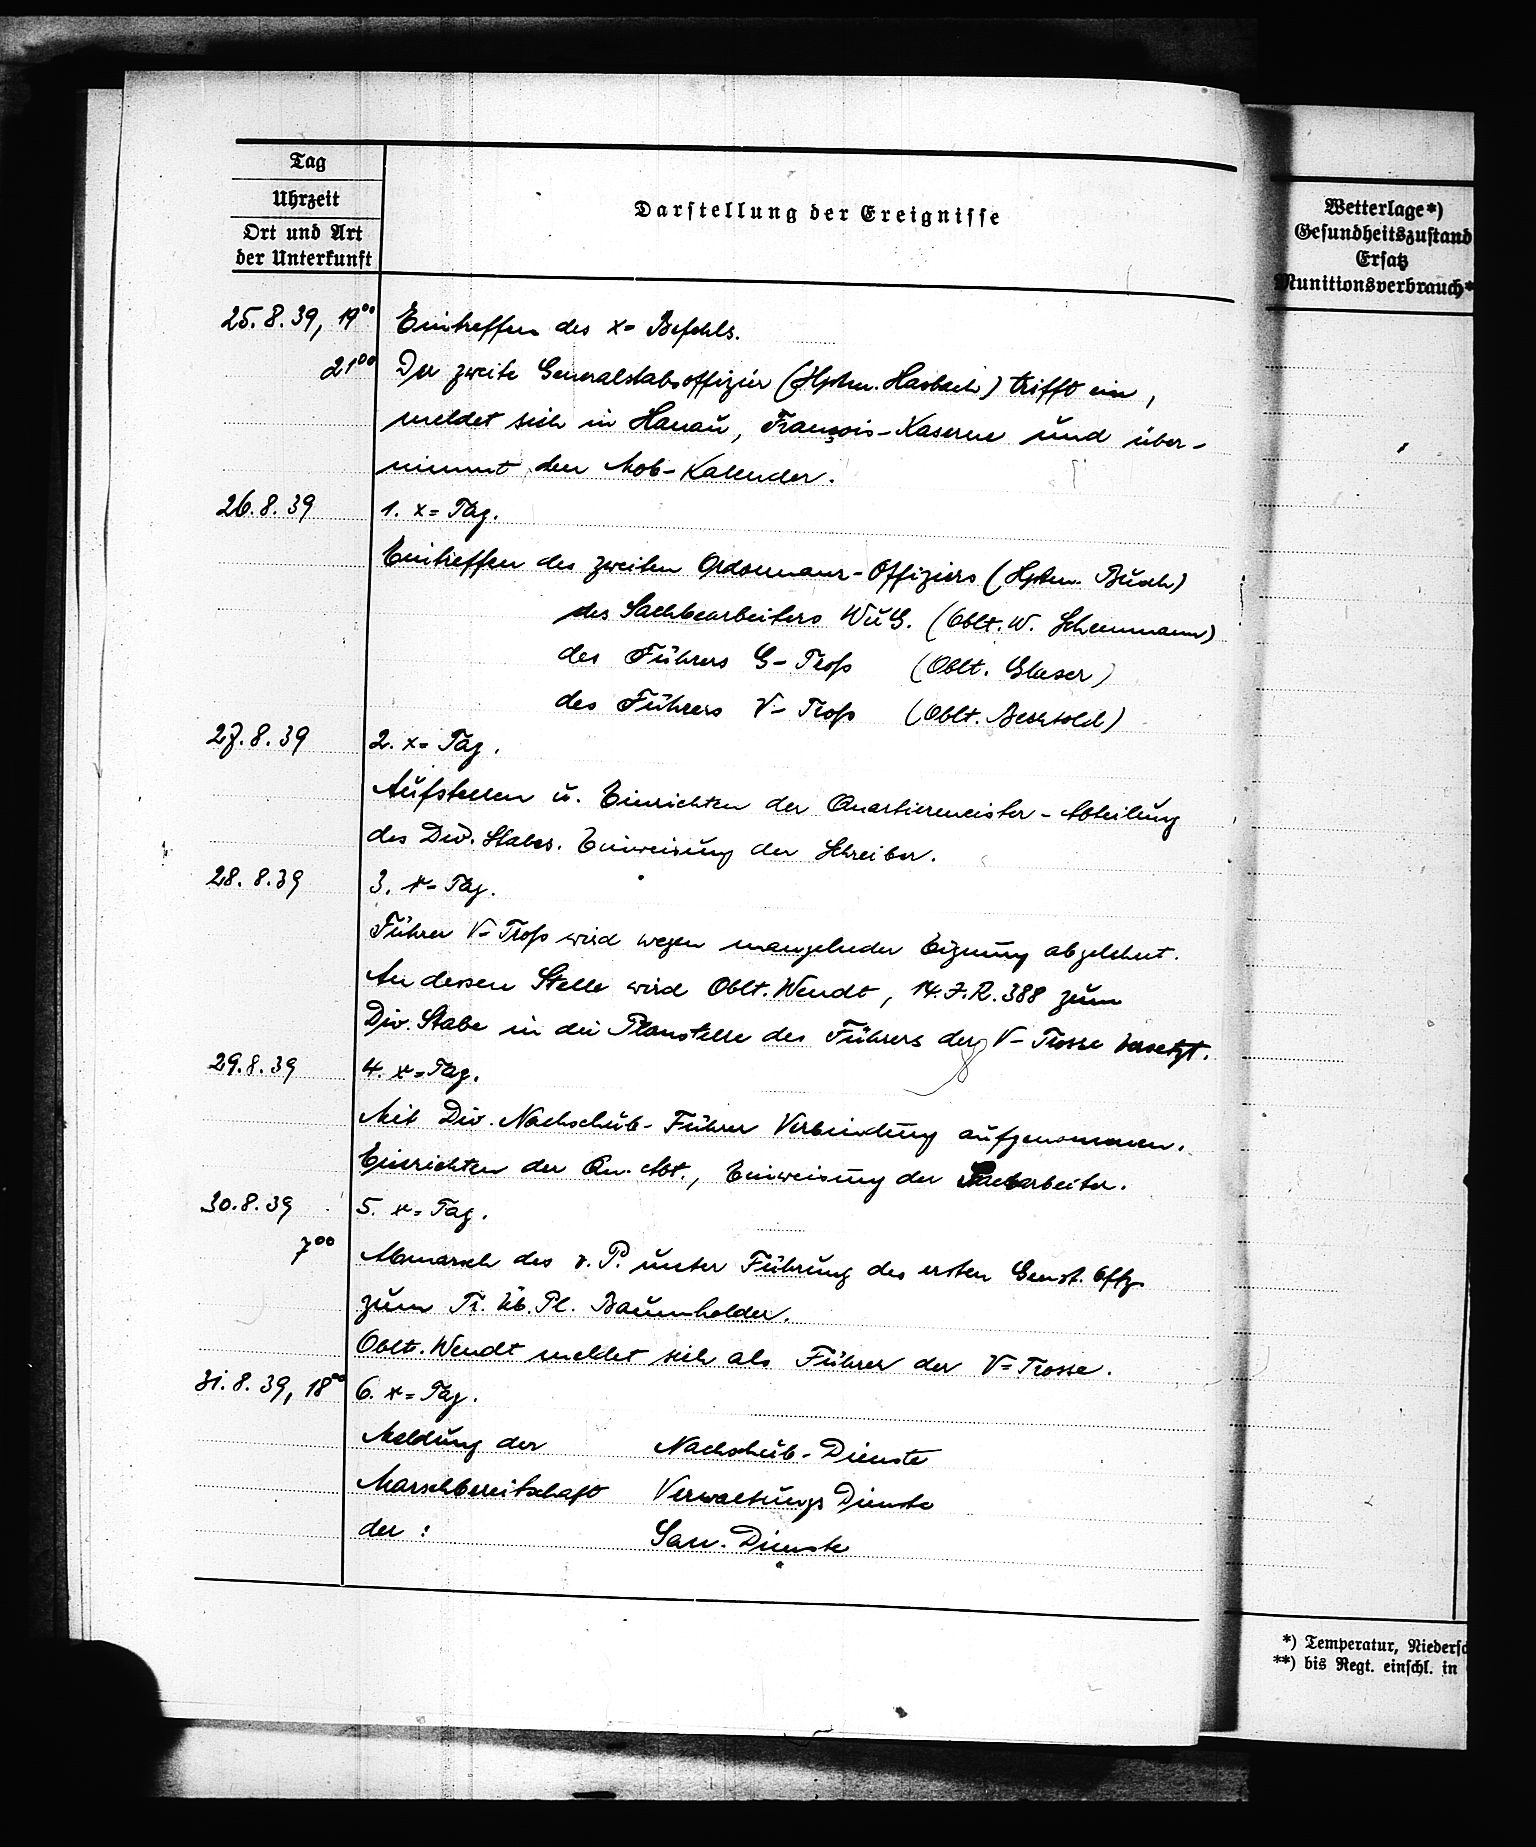 Tag
Uhrzeit
Ort und Art
der Unterkunft
Darstellung der Ereignisse
25.8.39, 19⁰⁰ Eintreffen des x=Befehls.
21⁰⁰ Der zweite Generalstabsoffizier (Hptm. Hasbach) trifft ein,
meldet sich in Hanau, François-Kaserne und über-
nimmt den Mob-Kalender.
26.8.39 1. x=Tag.
Eintreffen des zweiten Ordonnanz-Offiziers (Hptm. Buch)
des Sachbearbeiters WuG. (Oblt. W. Scheumann)
des Führers G-Troß (Oblt. Glaser)
des Führers V-Troß (Oblt. Bechtold)
27.8.39 2. x=Tag.
Aufstellen u. Einrichten der Quartiermeister-Abteilung
des Div. Stabes. Einweisung der Schreiber.
28.8.39 3. x=Tag.
Führer V-Troß wird wegen mangelnder Eignung abgelehnt.
An dessen Stelle wird Oblt. Wendt, 14. J.R. 388 zum
Div. Stabe in die Planstelle des Führers der V-Trosse versetzt.
29.8.39 4. x=Tag.
Mit Div. Nachschub-Führer Verbindung aufgenommen.
Einrichten der Qu. Abt., Einweisung der Sacharbeiter.
30.8.39 5. x=Tag.
7⁰⁰ Abmarsch des v. P. unter Führung des ersten Genst. Offz
zum Tr. Üb. Pl. Baumholder.
Oblt. Wendt meldet sich als Führer der V=Trosse.
31.8.39, 18⁰⁰ 6. x=Tag.
Meldung der Nachschub-Dienste
Marschbereitschaft Verwaltungs Dienste
der: San. Dienste
Wetterlage*)
Gesundheitszustand
Ersatz
Munitionsverbrauch*
*) Temperatur, Niedersc
**) bis Regt. einschl. in